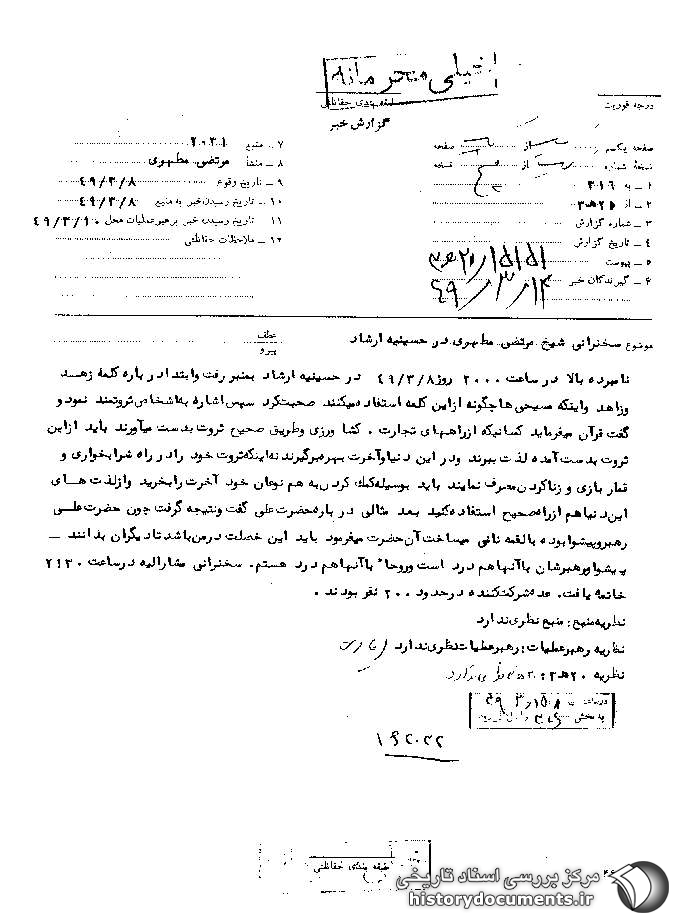 خیلی محرمانه
طبقه بندی حفاظتی
درجه فوریت
گزارش خبر
صفحه یکم از صفحه
نسخه شماره از نسخه
۱ ـ به ۳۱۶
۲ ـ از ۲۰ ه‍ ۲۵
۳ ـ شماره گزارش
۴ ـ تاریخ گزارش
۵ ـ پیوست
۶ ـ گیرندگان خبر
۴۹/۳/۱۴
۷ ـ منبع ۲۰۳۱
۸ ـ منشأ مرتضی مطهری
۹ ـ تاریخ وقوع ۴۹/۳/۸
۱۰ ـ تاریخ رسیدن خبر به منبع ۴۹/۳/۸
۱۱ ـ تاریخ رسیدن خبر برهبر عملیات محل ۴۹/۳/۱۰
۱۲ ـ ملاحظات حفاظتی
موضوع سخنرانی شیخ مرتضی مطهری در حسینیه ارشاد
عطف
پیرو
نامبرده بالا در ساعت ۲۰۰۰ روز ۴۹/۳/۸ در حسینیه ارشاد بمنبر رفت و ابتدا در باره کلمه زهد
وزاهد واینکه مسیحی ها چگونه از این کلمه استفاده میکنند صحبت کرد سپس اشاره به اشخاص ثروتمند نمود و
گفت قرآن میفرماید کسانیکه از راههای تجارت ، کشاورزی وطریق صحیح ثروت بدست میآورند باید از این
ثروت بدست آمده لذت ببرند ودر این دنیا وآخرت بهره برگیرند نه اینکه ثروت خود را در راه شرابخواری و
قمار بازی و زنا کردن مصرف نمایند باید بوسیله کمک کردن به هم نوعان خود آخرت را بخرید واز لذت های
این دنیا هم از راه صحیح استفاده کنید بعد مثالی در باره حضرت علی گفت ونتیجه گرفت چون حضرت علی
رهبر وپیشوا بوده با لقمه نانی میساخت آن حضرت میفرمود باید این خصلت در من باشد تا دیگران بدانند ـ
پیشوا ورهبرشان با آنها هم درد است وروحا" با آنها هم درد هستم . سخنرانی مشارالیه در ساعت ۲۱۳۰
خاتمه یافت . عده شرکت کننده در حدود ۲۰۰ نفر بودند .
نظریه منبع : منبع نظری ندارد
نظریه رهبر عملیات : رهبر عملیات نظری ندارد
نظریه ۲۰ ه‍ ۲ :
۱۹۲۰۲۲
طبقه بندی حفاظتی
مرکز بررسی اسناد تاریخی
historydocuments.ir